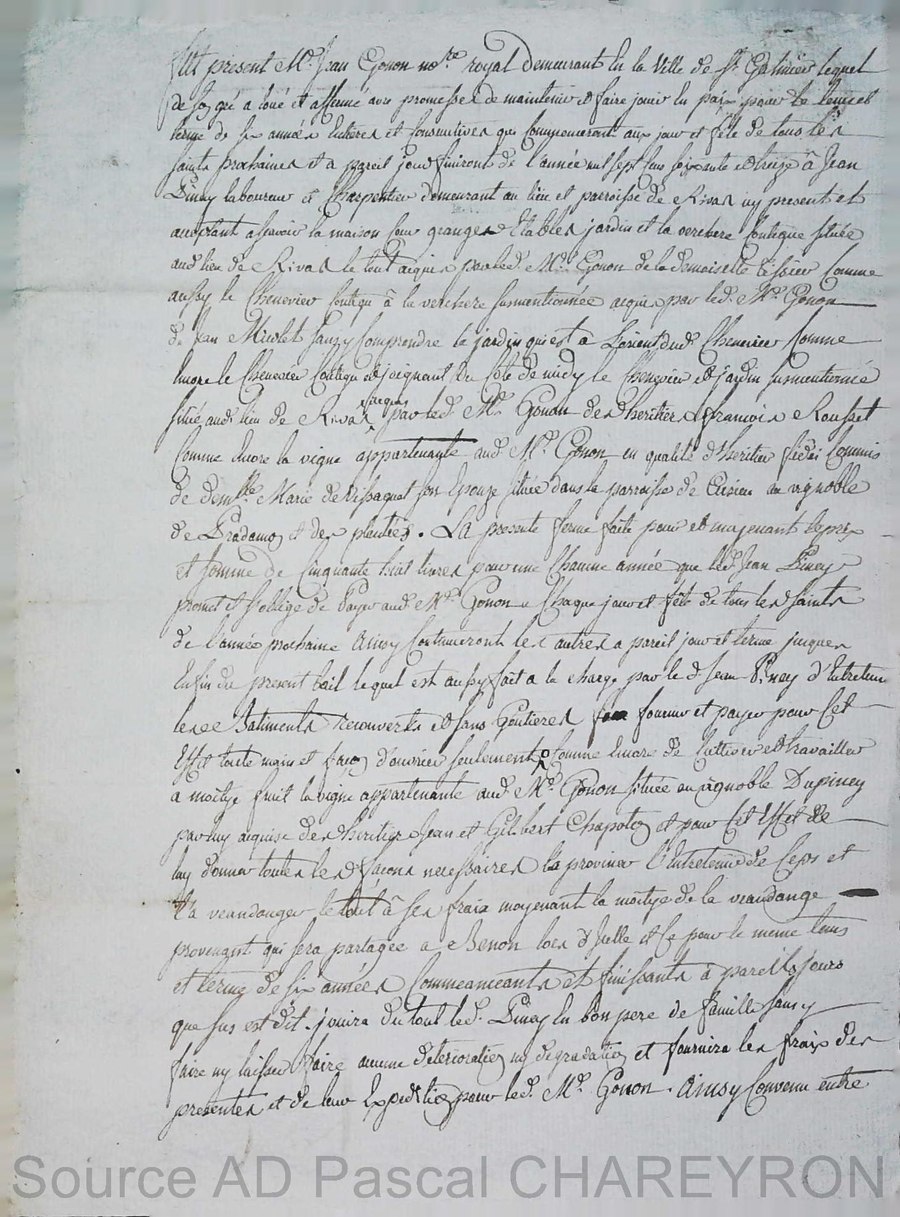 fut present Me. Jean Gonon nore. royal demeurant en la Ville de St. Galmier lequel
de son gré a loué et affermé avec promesse de maintenir et faire jouir en paix pour le temps et
terme de six années entieres et consecutives qui commenceront aux jour et fête de tous les
saints prochaines et a pareil jour finiront de l'année mil sept cens soixante et treize à Jean
Piney laboureur et Charpentier demeurant au lieu et parroisse de Rivas icy present et
acceptant assavoir la maison cour grange Etables jardin et la verchere contigue située
aud. lieu de Rivas le tout acquis par led. Me. Gonon de la demoiselle Tissier Comme
aussy le Chenevier contigu à la verchere susmentionnée acquis par led. Me. Gonon
de Jean Micolet sans y comprendre le jardin qui est a L'orient dud. Chenevier Comme
encore le Chenevier contigu et joignant du Coté de midy le Chenevier et jardin susmentionné
situé aud. lieu de Rivas acquis par led. Me. Gonon des heritiers francois Rousset
Comme encore la vigne appartenante aud. Me. Gonon en qualité d'heritier fidei Commis
de demlle. Marie de son Epouze située dans la parroisse de au vignoble
de et des plantés. La presente ferme faite pour et moyenant le prix
et somme de Cinquante huit livres pour une Chacune année que led. Jean Piney
promet et s'oblige de payer aud. Me. Gonon a Chaque jour et fête de tous les Saints
de l'année prochaine ainsy Continueront les autres a pareil jour et terme jusques
Enfin du present bail lequel est aussy fait a la charge par le d. Jean Piney d'Entretenir
les Batiments recouverts et sans Goutieres fournir et payer pour Cet
Effet toute main et façon d'ouvrier seulement Comme encore de Cultiver et travailler
a moitye fruit la vigne appartenante aud. Me. Gonon située au vignoble Dupiney
par luy acquise des heritiers Jean et Gilibert Chapolon et pour Cet Effet de
luy donner toutes les façons necessaires la proviner l'Entretenir de Ceps et
la veandanger le tout à ses frais moyenant la moitye de la veandange
provenant qui sera partagée a Benon lors d'Icelle et Ce pour le meme tems
et terme de six années Commenceants et finissants à pareils jours
que sus est dit. jouira du tout led. Piney en bon pere de famille sans y
faire ny laisser faire aucune deterioration ny degradation et fournira les fraix des
presentes et de leur Expedition pour led. Me. Gonon. Ainsy Convenu entre
Source AD Pascal CHAREYRON